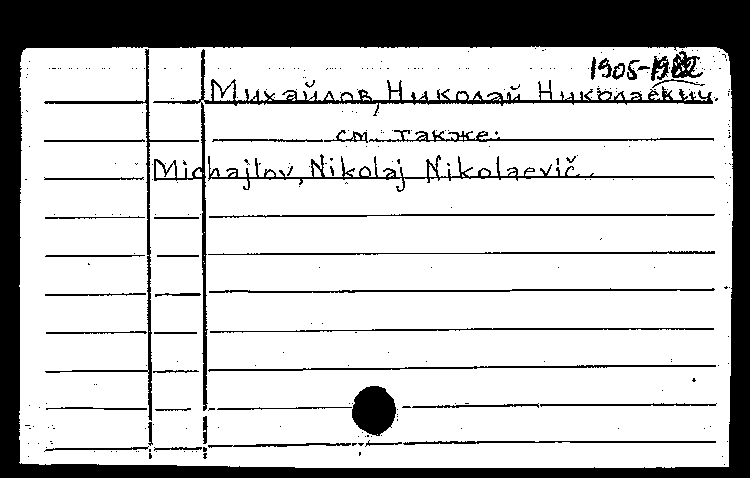 1905-1982
Михайлов, Николай Николаевич.
см. также:
Michajlov, Nikolaj Nikolaevič.